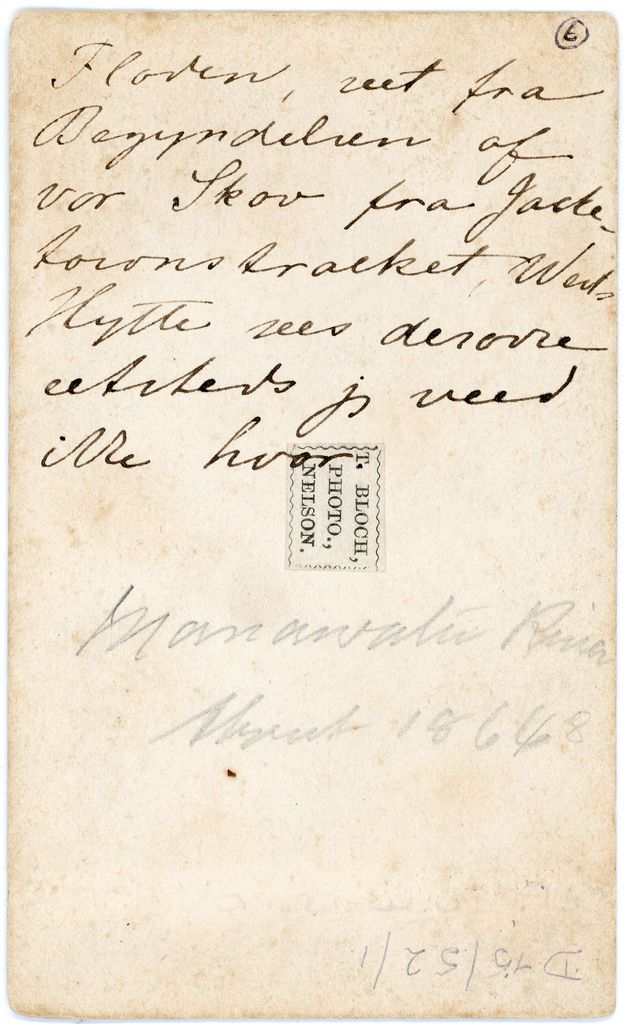 6
Floden, set fra
Begyndelsen af
vor Skov fra Jacke-
townstracket, West's
Hytte sees derovre
etsteds jg veed
ikke hvor
T. BLOCH,
PHOTO.,
NELSON.
Manawatu River
About 18648
D 15/52/1